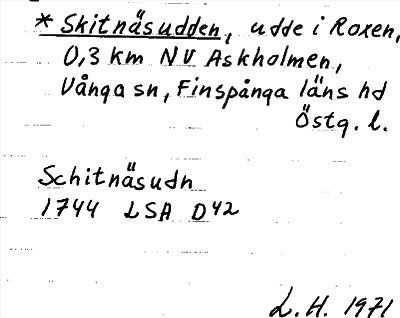 * Skitnäsudden, udde i Roxen,
0,3 km NV Askholmen,
Vånga sn, Finspånga läns hd
Östg. l.
Schitnäsudn
1744 LSA D42
L. H. 1971